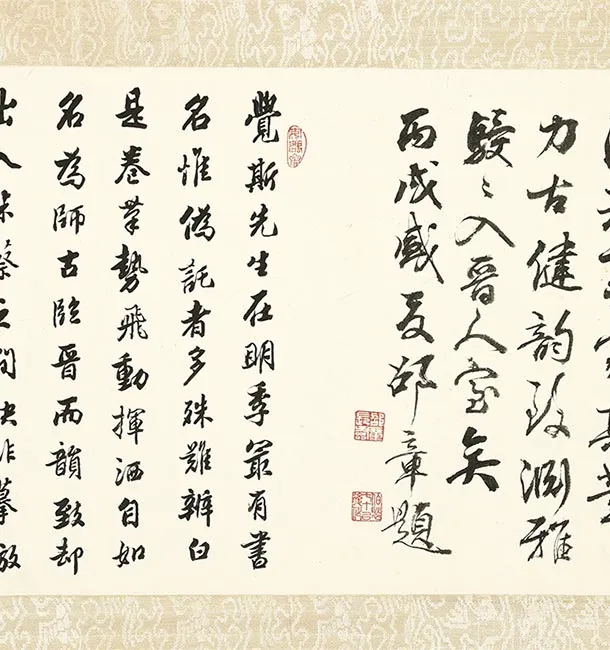 力古健韵致渊雅
駸々入晋人室矣
丙戌盛夏邵章題
覺斯先生在明季㝡有書
名惟偽託者多殊難辨白
是卷筆勢飛動揮洒自如
名為師古臨晉而韻致却
出入米蔡之間決非摹放